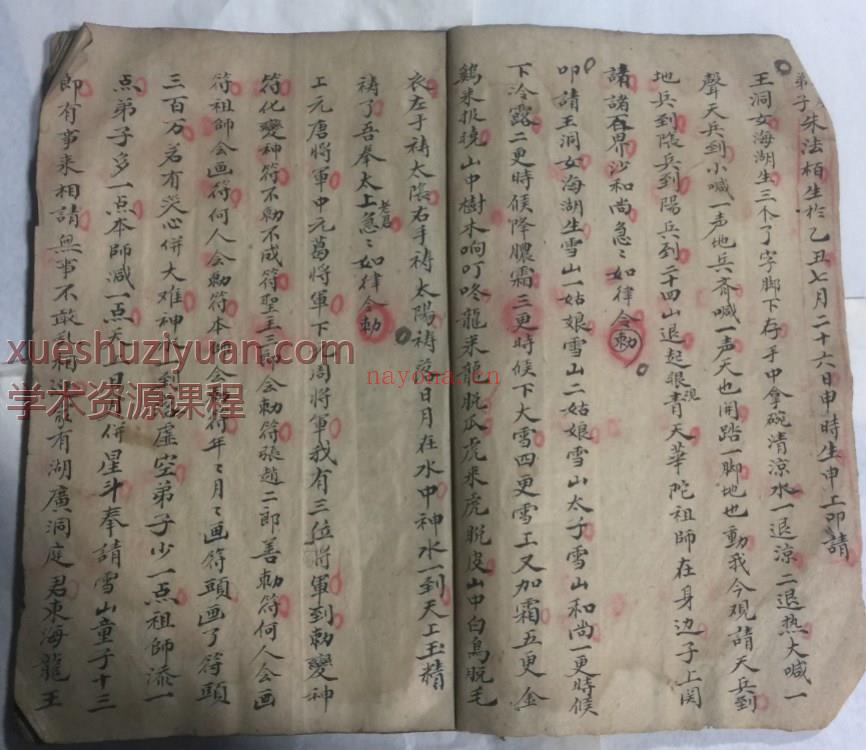 弟子朱法栢生於乙丑七月二十六日申時生申上叩請
王洞女海湖生三个了字脚下存手中拿碗清凉水一退凉二退热大喊一
聲天兵到小喊一声地兵齐喊一声天也開踏一脚地也動我今观請天兵到
地兵到陰兵到陽兵到二十四山退起眼青天華陀祖師在身边子上関
請諸百界沙和尚急〻如律令勅
叩請王洞女海湖生雪山一姑娘雪山二姑娘雪山太子雪山和尚一更時候
下冷露二更時候降膿霜三更時候下大雪四更雪上又加霜五更金
鷄来报晓山中樹木响叮咚龍来龍脱瓜虎来虎脱皮山中白鳥脱毛
衣左手祷太陰右手祷太陽祷落日月在水中神水一到天上玉精
祷了吾奉太上老君急〻如律令勅
上元唐將軍中元葛將軍下元周將軍我有三位將軍到勅變神
符化變神符不勅不成符聖主三師会勅符張趙二郎善勅符何人会画
符祖師会画符何人会勅符本師会勅符年〻月〻画符頭画了符頭
三百万若有災心併大难神 到 虚空弟子少一点祖師添一
点弟子多一点本師减一点天上日月併星斗奉請雪山童子十三
郎有事来相請無事不敢 有湖廣洞庭君東海龍王
xueshuziyuan.com
学术资源课程
nayona.cn